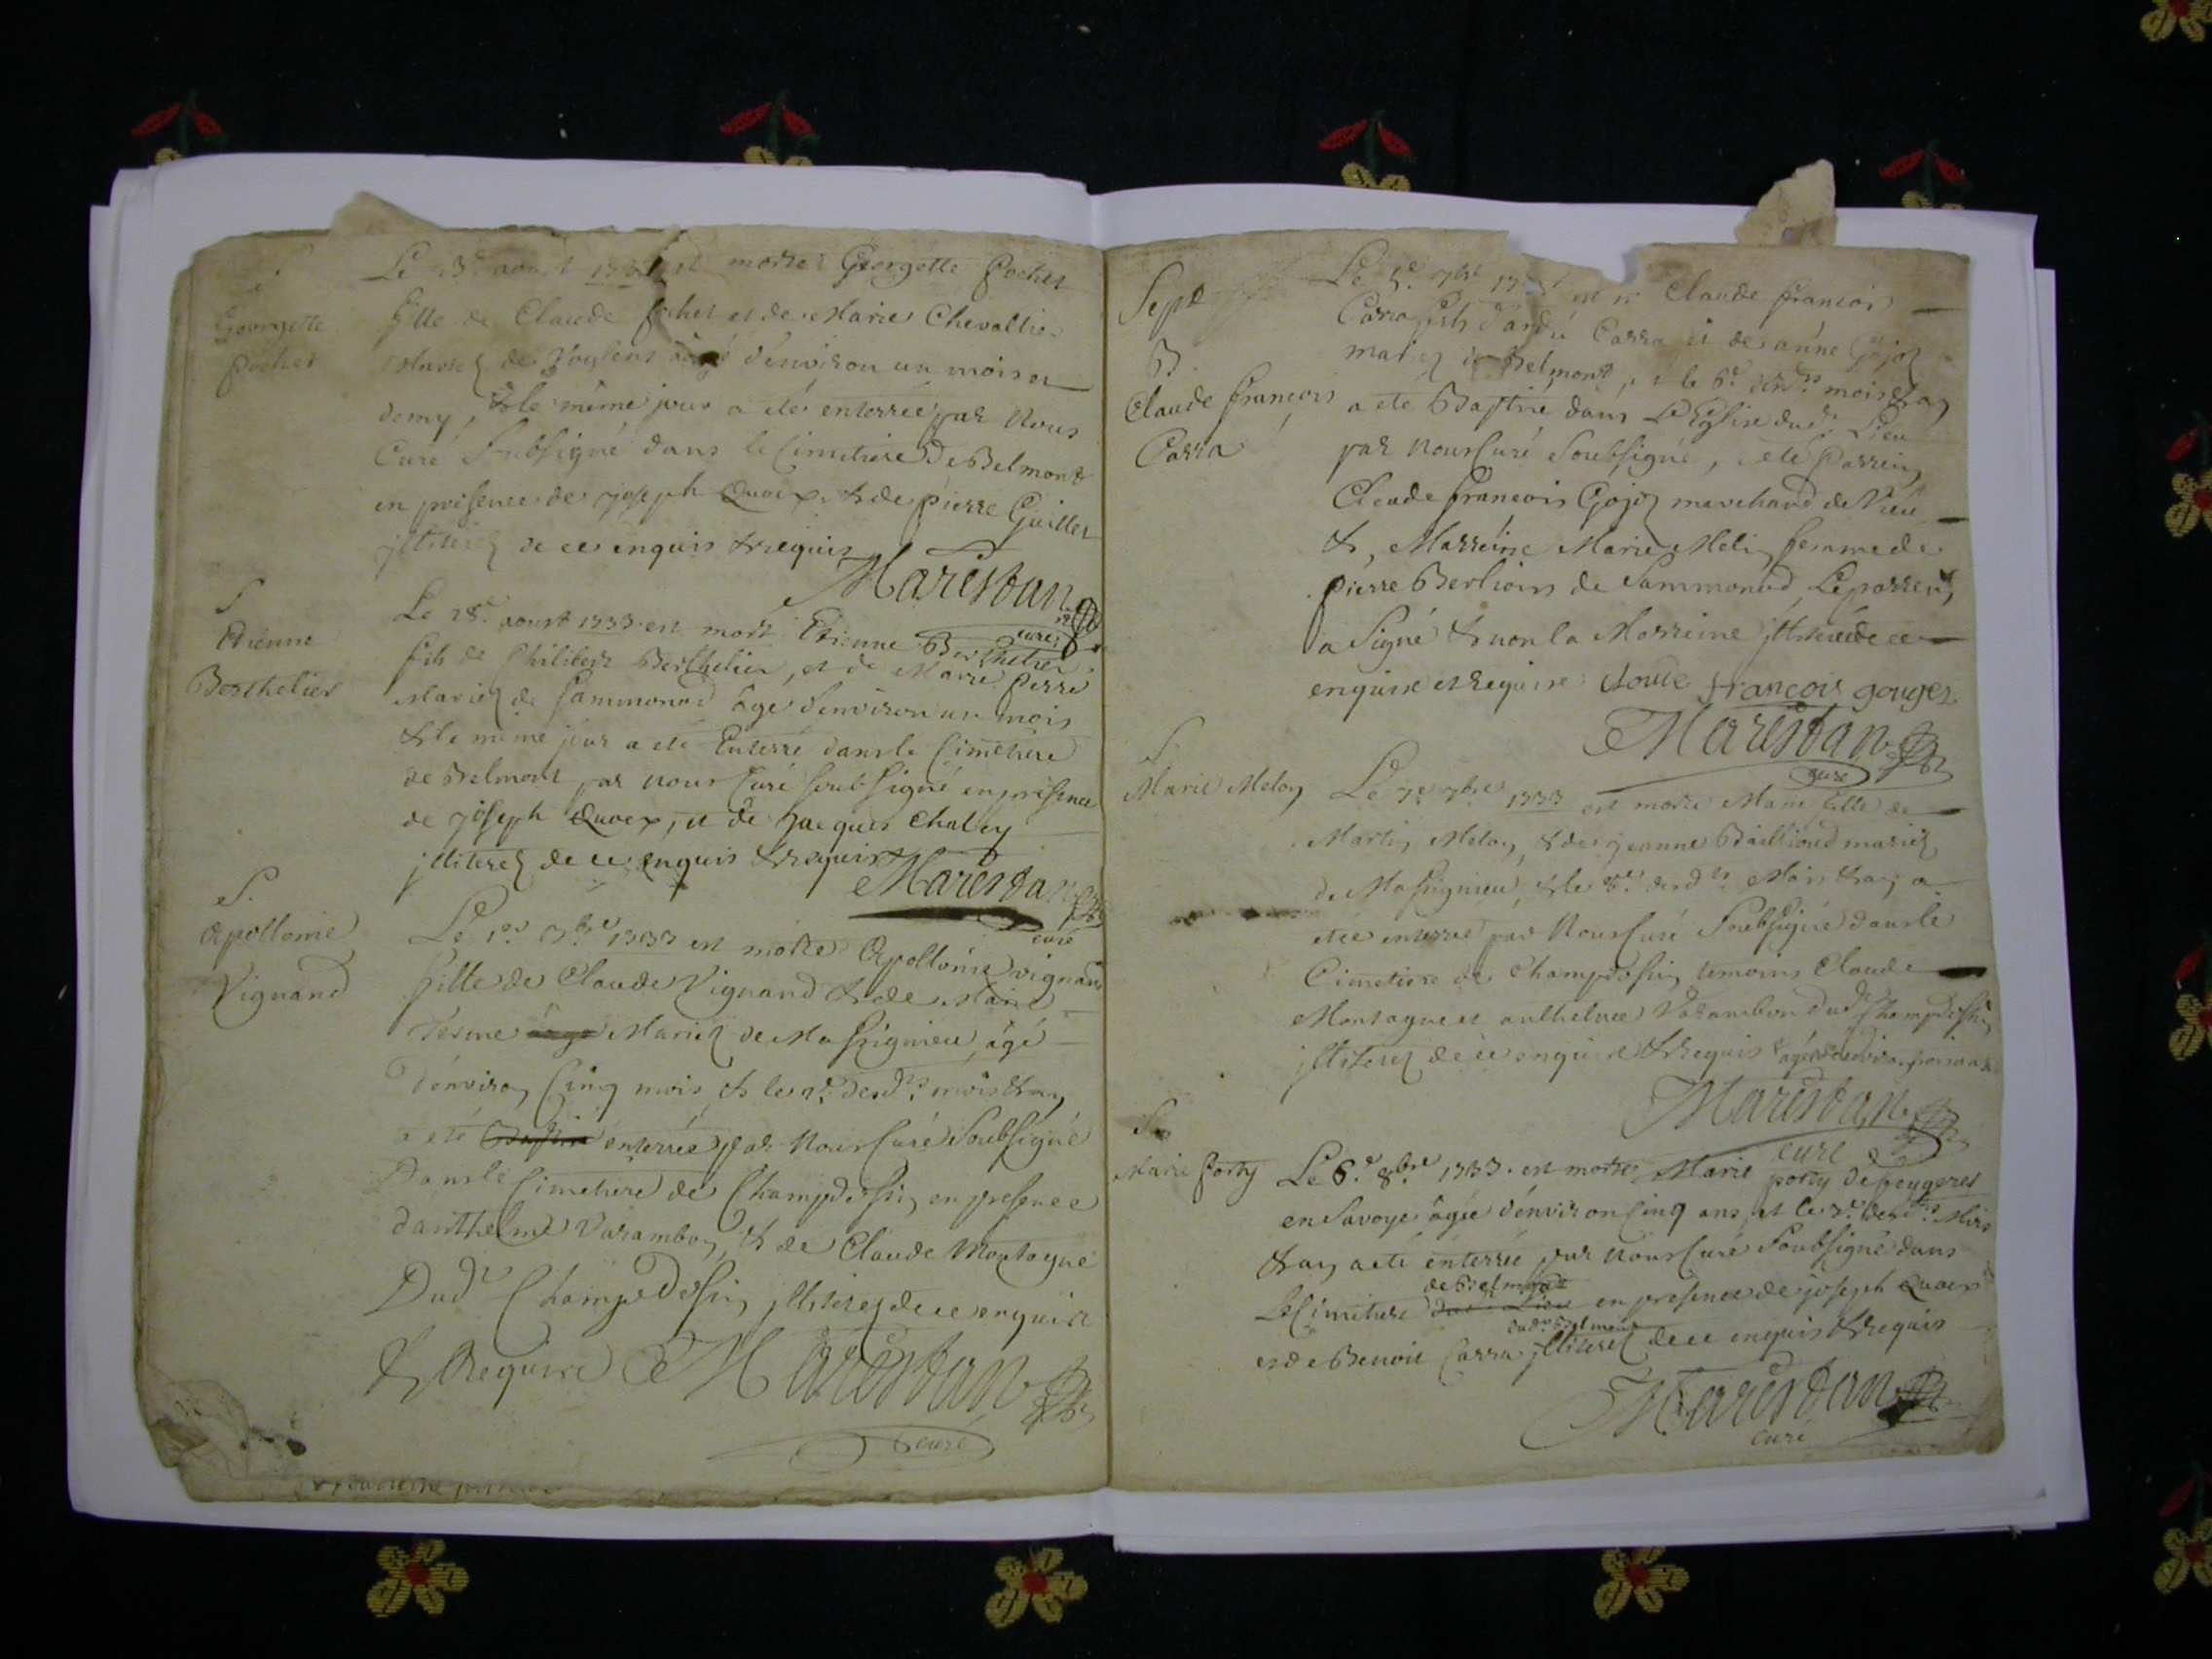 S
Georgette
pochet
Le 13e aoust 1733 est morte Georgette pochet
fille de Claude pochet et de Marie Chevallier
Mariez de âgé d'environ un mois et
demy, & le même jour a eté enterrée par Nous
Curé Soubsigné dans le Cimetiere De Belmont
en présence de joseph Quoex & de pierre Guillet
jlliterez de ce enquis & requis
Marestan
curé
S
Etienne
Berthelier
Le 28e aoust 1733 est mort Etienne Berthelier
fils de Philibert Berthelier, et de Marie perre
Mariez de Sammonod âgé d'environ un mois
& le même jour a eté Enterré dans le Cimetiere
de Belmont par nous Curé soubsigné en présence
de joseph Quoex, et de jacques Chaley
jlliterez de ce enquis & requis
Marestan
curé
S.
Apollonie
Vignand
Le 1er 7bre 1733 est morte Apollonie vignand
fille de Claude Vignand & de Marie
Mariez de Massignieu âgé
d'environ Cinq mois & le 2e desdts mois & an
a eté Baptisé enterrée par Nous Curé Soubsigné
Dans le Cimetiere de Champdossin en presence
d'anthelme Varambon, & de Claude Montagne
Dudt Champdossin jlliterez de ce enquis
& Require Marestan
curé
Sept
B.
Claude françois
Carra
Le 5e 7bre 1733 est né Claude françois
Carra fils d'andré Carra et de anne Gojoz
mariez de Belmont, et le 6e desdts mois & an
a eté Baptisé dans L'Eglise dudt Lieu
par nous Curé Soubsigné, a eté Parrein
Claude françois Gojoz marchand de Vieu
& Marreine Marie Melin femme de
pierre Berlioz de Sammonod, Le parrein
a Signé & non la Marreine jlliterée de ce
enquise et Requise Cloude françois gougez
Marestan
curé
S
Marie Meloy
Le 7e 7bre 1733 est morte Marie fille de
Martin Meloy, & de jeanne Bailliond mariez
de Massignieu, & le 8e desdts Mois & an a
etée enterrée par Nous Curé Soubsigné dans le
Cimetiere de Champdossin temoins Claude
Montagne et anthelme Varambon dudt Champdossin
jlliterez de ce enquire & requis
Marestan
curé
S
Marie Porty
Le 6e 8bre 1733 est morte Marie porty de peygeres
en Savoye âgée d'environ Cinq ans, et le 7e desdts Mois
& an a eté enterrée par nous Curé Soubsigné dans
Le Cimetiere dud. Lieu de Belmont en presence de joseph Quoex
et de Benoit Carra dudt Belmont jlliterez de ce enquis & requis
Marestan
curé